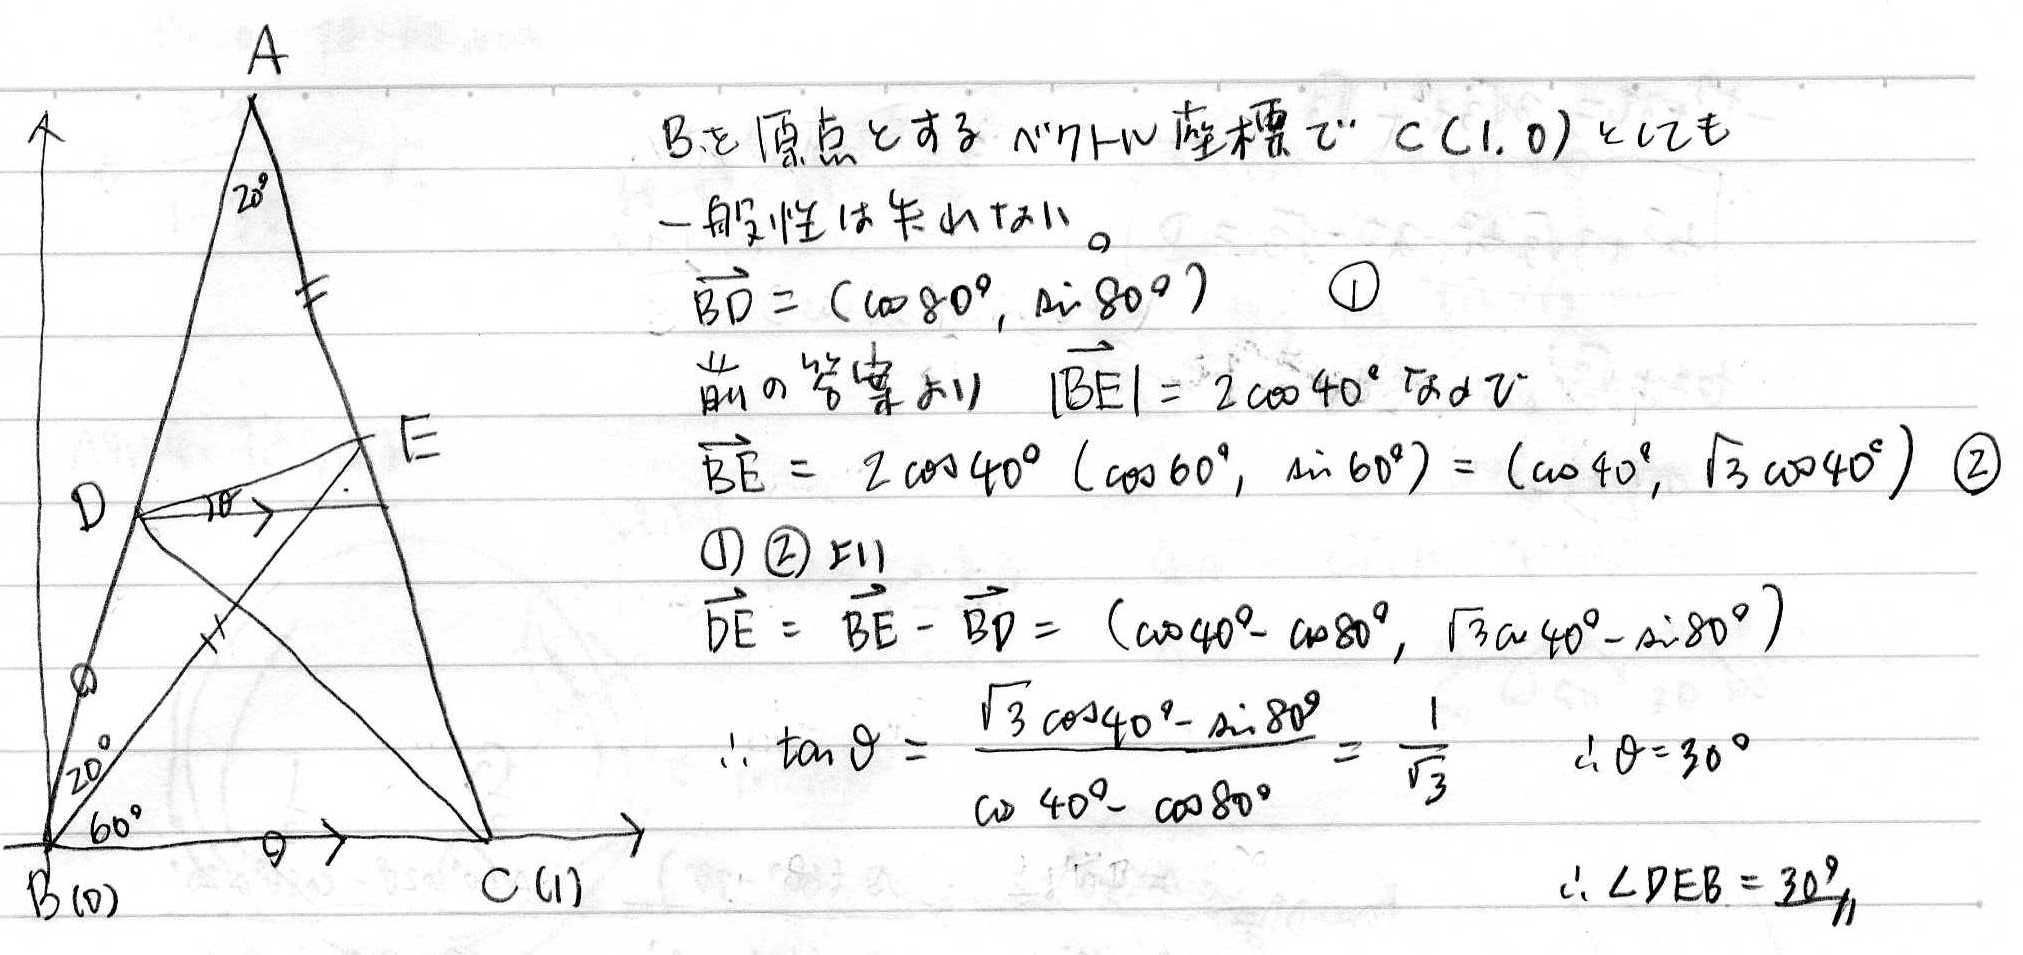 A
20°
E
D
θ
20°
60°
B(0)
C(1)
Bを原点とするベクトル座標で C(1.0)としても
一般性は失われない。
$\overrightarrow{BD}$ = (cos80°, sin80°) ①
前の答案より |$\overrightarrow{BE}$| = 2cos40° なので
$\overrightarrow{BE}$ = 2cos40° (cos60°, sin60°) = (cos40°, √3cos40°) ②
①②より
$\overrightarrow{DE}$ = $\overrightarrow{BE}$ - $\overrightarrow{BD}$ = (cos40°- cos80°, √3cos40°- sin80°)
∴ tanθ = $\frac{\sqrt{3}cos40°- sin80°}{cos40°- cos80°}$ = $\frac{1}{\sqrt{3}}$ ∴ θ=30°
∴ ∠DEB = 30°